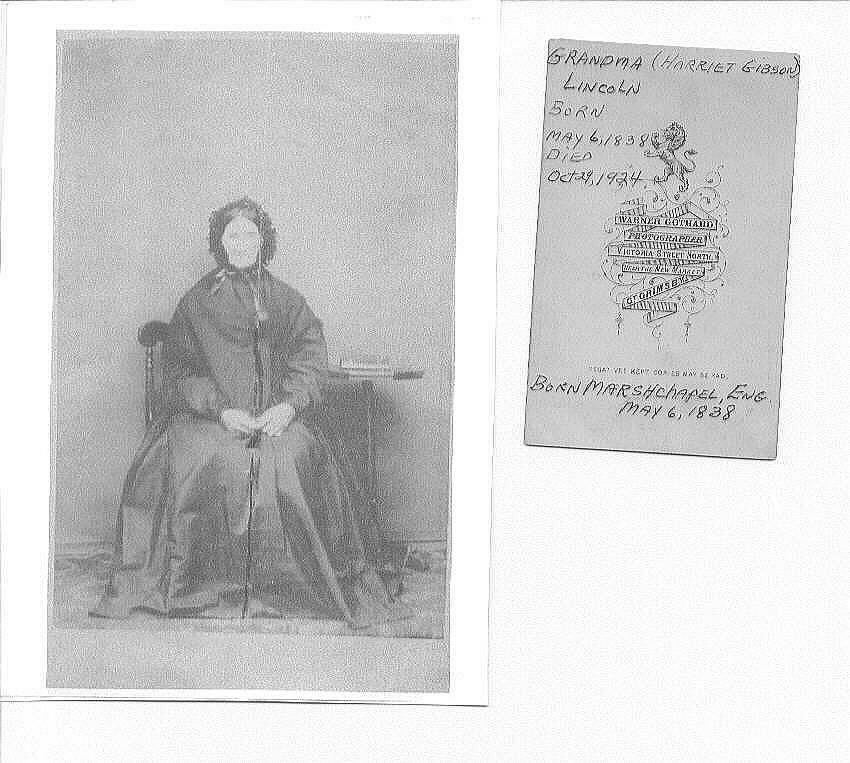 GRANDMA (HARRIET GIBSON)
LINCOLN
BORN
MAY 6, 1838
DIED
OCT 29, 1924
WARNER GOTHARD
PHOTOGRAPHER
VICTORIA STREET NORTH,
NEAR THE NEW MARKET
GT GRIMSBY
NEGATIVES KEPT COPIES MAY BE HAD.
BORN MARSHCHAPEL, ENG.
MAY 6, 1838